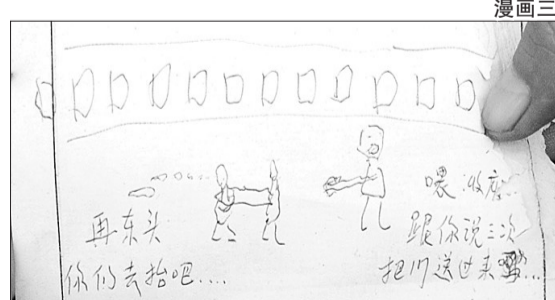 漫画三
再东头
你们去抬吧....
喂 收废...
跟你说三次
把门送过来